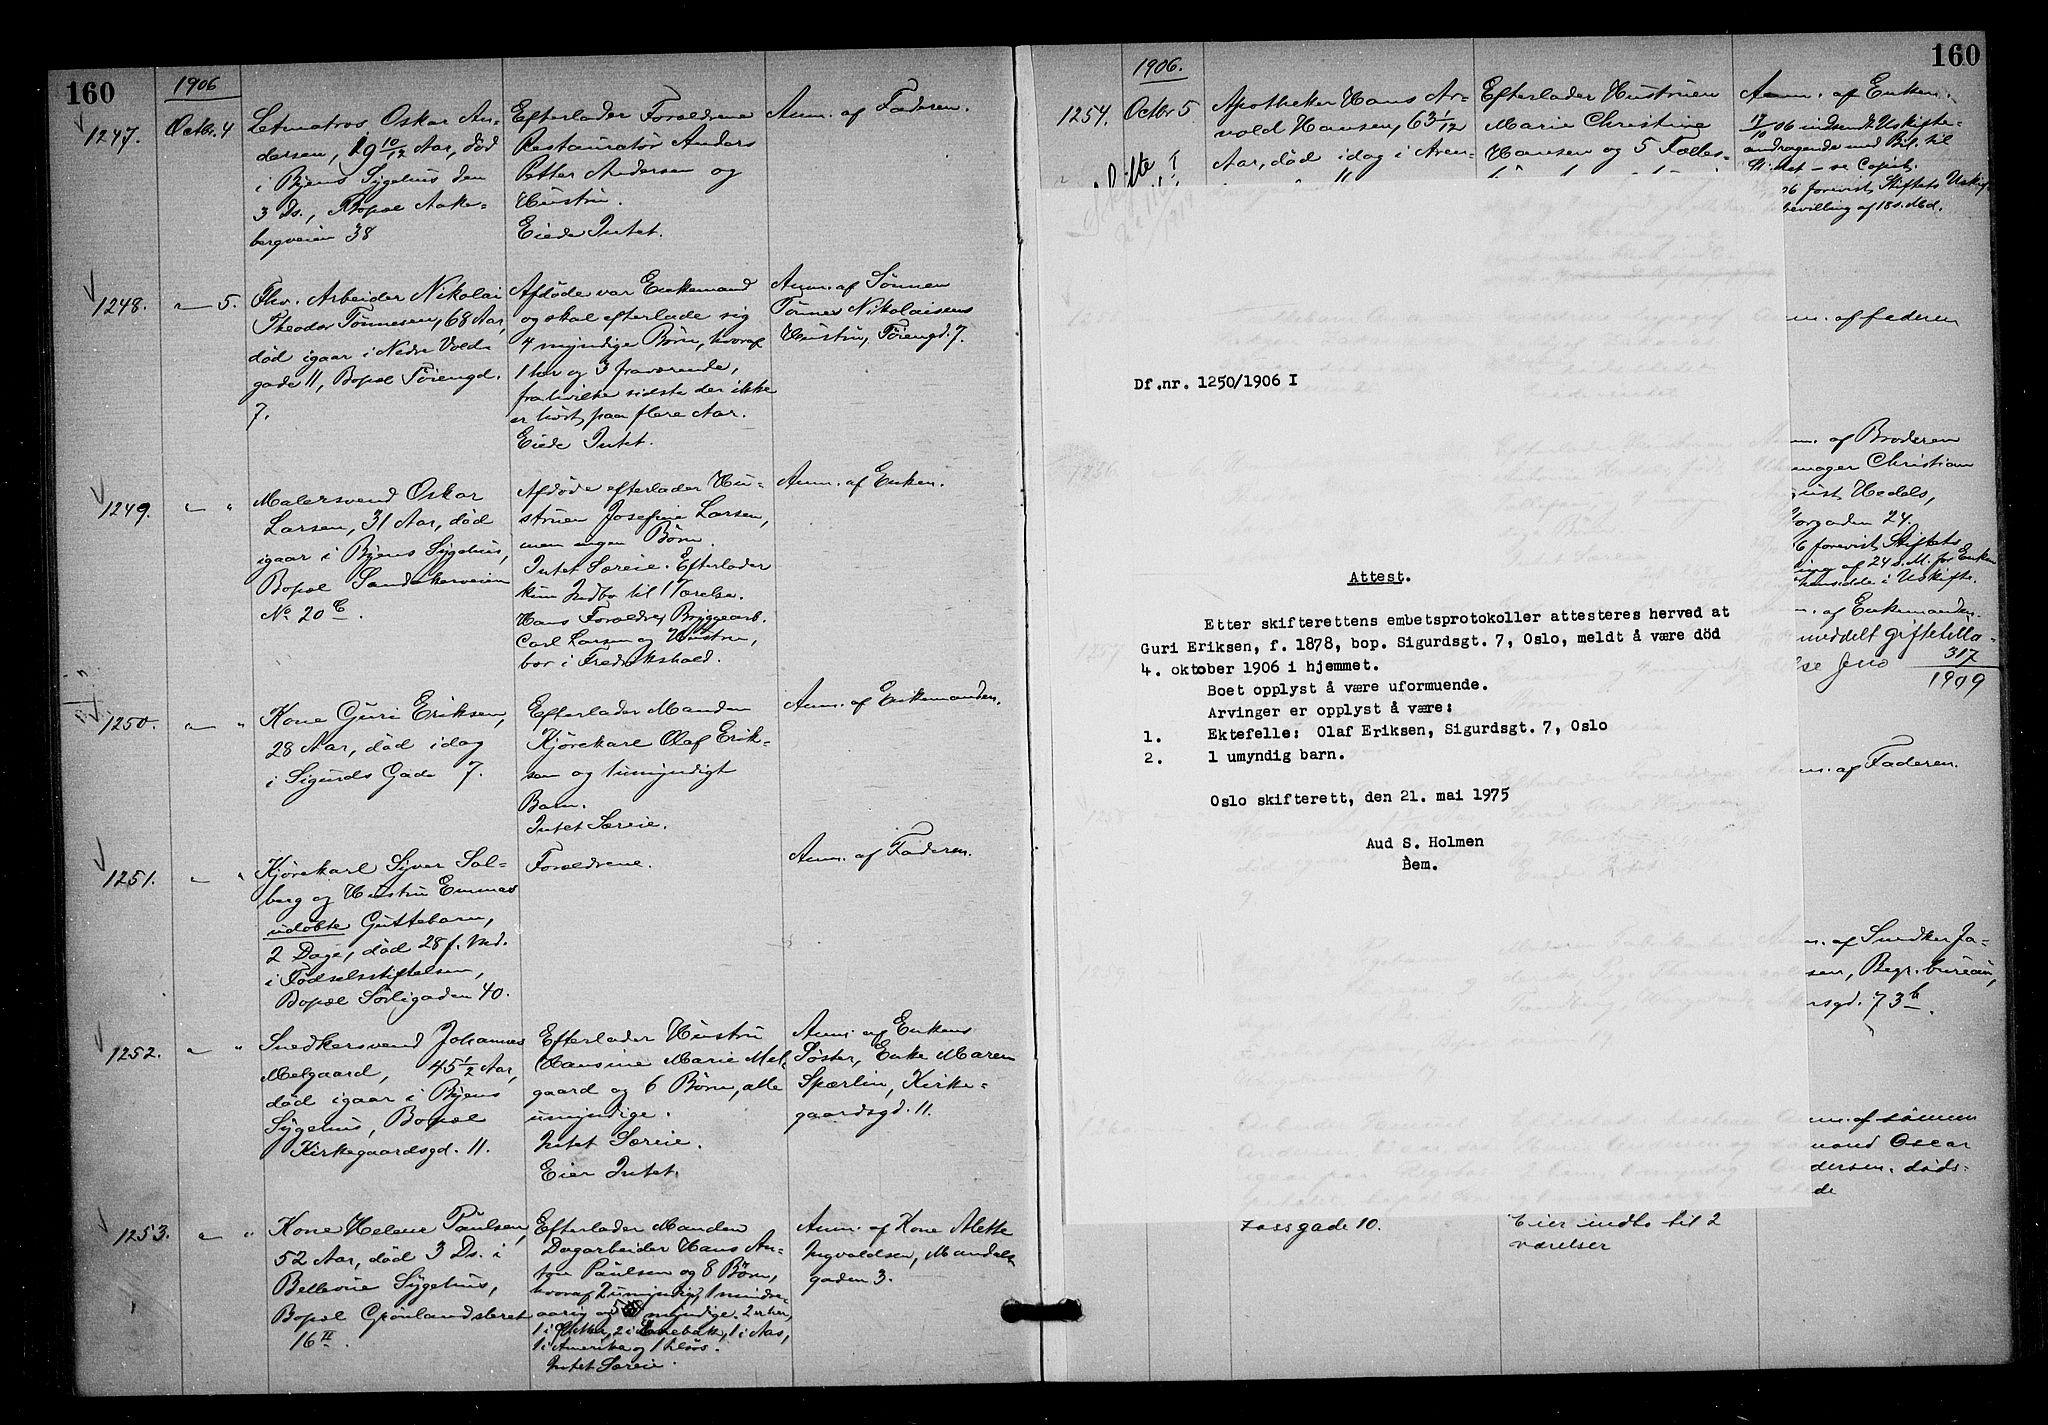 160
1906
1247. Octbr. 4
Letmatros Oskar An-
dersen, 19 10/12 Aar, død
i Byens Sygehus den
3 Ds., Bopæl Aake-
bergveien 38
Efterlader Forældrene
Restauratør Anders
Petter Andersen og
Hustru.
Eiede Intet.
Anm. af Faderen.
1248. " 5.
Fhv. Arbeider Nikolai
Theodor Tønnesen, 68 Aar,
død igaar i Nedre Vold
gade 11, Bopæl Töiengd.
7.
Afdøde var Enkemand
og skal efterlade sig
4 myndige Børn, hvoraf
1 her og 3 fraværende,
fra hvilke sidste der ikke
er hørt paa flere Aar.
Eiede Intet.
Anm. af Sønnen
Tønnes Nikolaisens
Hustru, Töiengd. 7.
1249. " "
Malersvend Oskar
Larsen, 31 Aar, død
igaar i Byens Sygehus,
Bopæl Sandakerveien
No 20 C.
Afdøde efterlader Hu-
struen Josefine Larsen,
men ingen Børn.
Intet Særeie. Efterlader
kun Indbo til 1 Værelse.
Hans Forældre, Bryggearb.
Carl Larsen og Hustru,
bor i Fredrikshald.
Anm. af Enken.
1250. " "
Kone Guri Eriksen,
28 Aar, død idag
i Sigurds Gade 7.
Efterlader Manden
Kjørekarl Olaf Erik-
sen og 1 umyndigt
Barn.
Intet Særeie.
Anm. af Enkemanden.
1251. " "
Kjørekarl Syver Sol-
berg og Hustru Emmas
udøbte Guttebarn,
2 Dage, død 28 f. Md.
i Fødselsstiftelsen,
Bopæl Sörligaden 40.
Forældrene.
Anm. af Faderen.
1252. " "
Snedkersvend Johannes
Melgaard, 45 1/2 Aar,
død igaar i Byens
Sygehus, Bopæl
Kirkegaardsgd. 11.
Efterlader Hustru
Hansine Marie Mel
gaard og 6 Børn, alle
umyndige.
Intet Særeie.
Eier Intet.
Anm. af Enkens
Søster, Enke Maren
Spærlin, Kirke-
gaardsgd. 11.
1253. " "
Kone Helene Paulsen,
52 Aar, død 3 Ds. i
Bellevue Sygehus,
Bopæl Grønlandsleret
16 II.
Efterlader Manden
Dagarbeider Hans An-
ton Paulsen og 8 Børn,
hvoraf 2 umyndige, 1 mindre-
aarig og 5 myndige. 2 er her,
1 i Amerika og 1 tilsøs.
Intet Særeie.
Anm. af Kone Alette
Ingvaldsen, Mandals
gaden 3.
1906.
160
1254. Octbr 5
Apotheker Hans Ar-
vold Hansen, 63 1/12
Aar, død idag i Aren-
Efterlader Hustruen
Marie Christine
Hansen og 5 Fælles-
Anm. af Enken.
17/10 06 indsendt Uskifte-
andragende med Bil. til
St. Amt - se Copib.
06 forevist Stiftets Uskif
bevilling af 18 s. Md.
Df.nr. 1250/1906 I
Attest.
Etter skifterettens embetsprotokoller attesteres herved at
Guri Eriksen, f. 1878, bop. Sigurdsgt. 7, Oslo, meldt å være død
4. oktober 1906 i hjemmet.
Boet opplyst å være uformuende.
Arvinger er opplyst å være:
1. Ektefelle: Olaf Eriksen, Sigurdsgt. 7, Oslo
2. 1 umyndig barn.
Oslo skifterett, den 21. mai 1975
Aud S. Holmen
Bem.
nm. af faderen
nm. af Broderen
mager Christian
gust Hedels,
Torgaden 24.
6 forevist Stiftets
ing af 24 s. M. for Enken
hensidde i Uskifte.
m. af Enkemanden.
meddelt giftetilla-
lse Jno 317
1909
nm. af Faderen.
m. af Snedker Ja-
sen, Begr. bureau,
ersgd. 73 b.
nm. af sønnen
mand Oscar
ndersen. døds-
de
Fossgade 10.
Eier indbo til 2
værelser